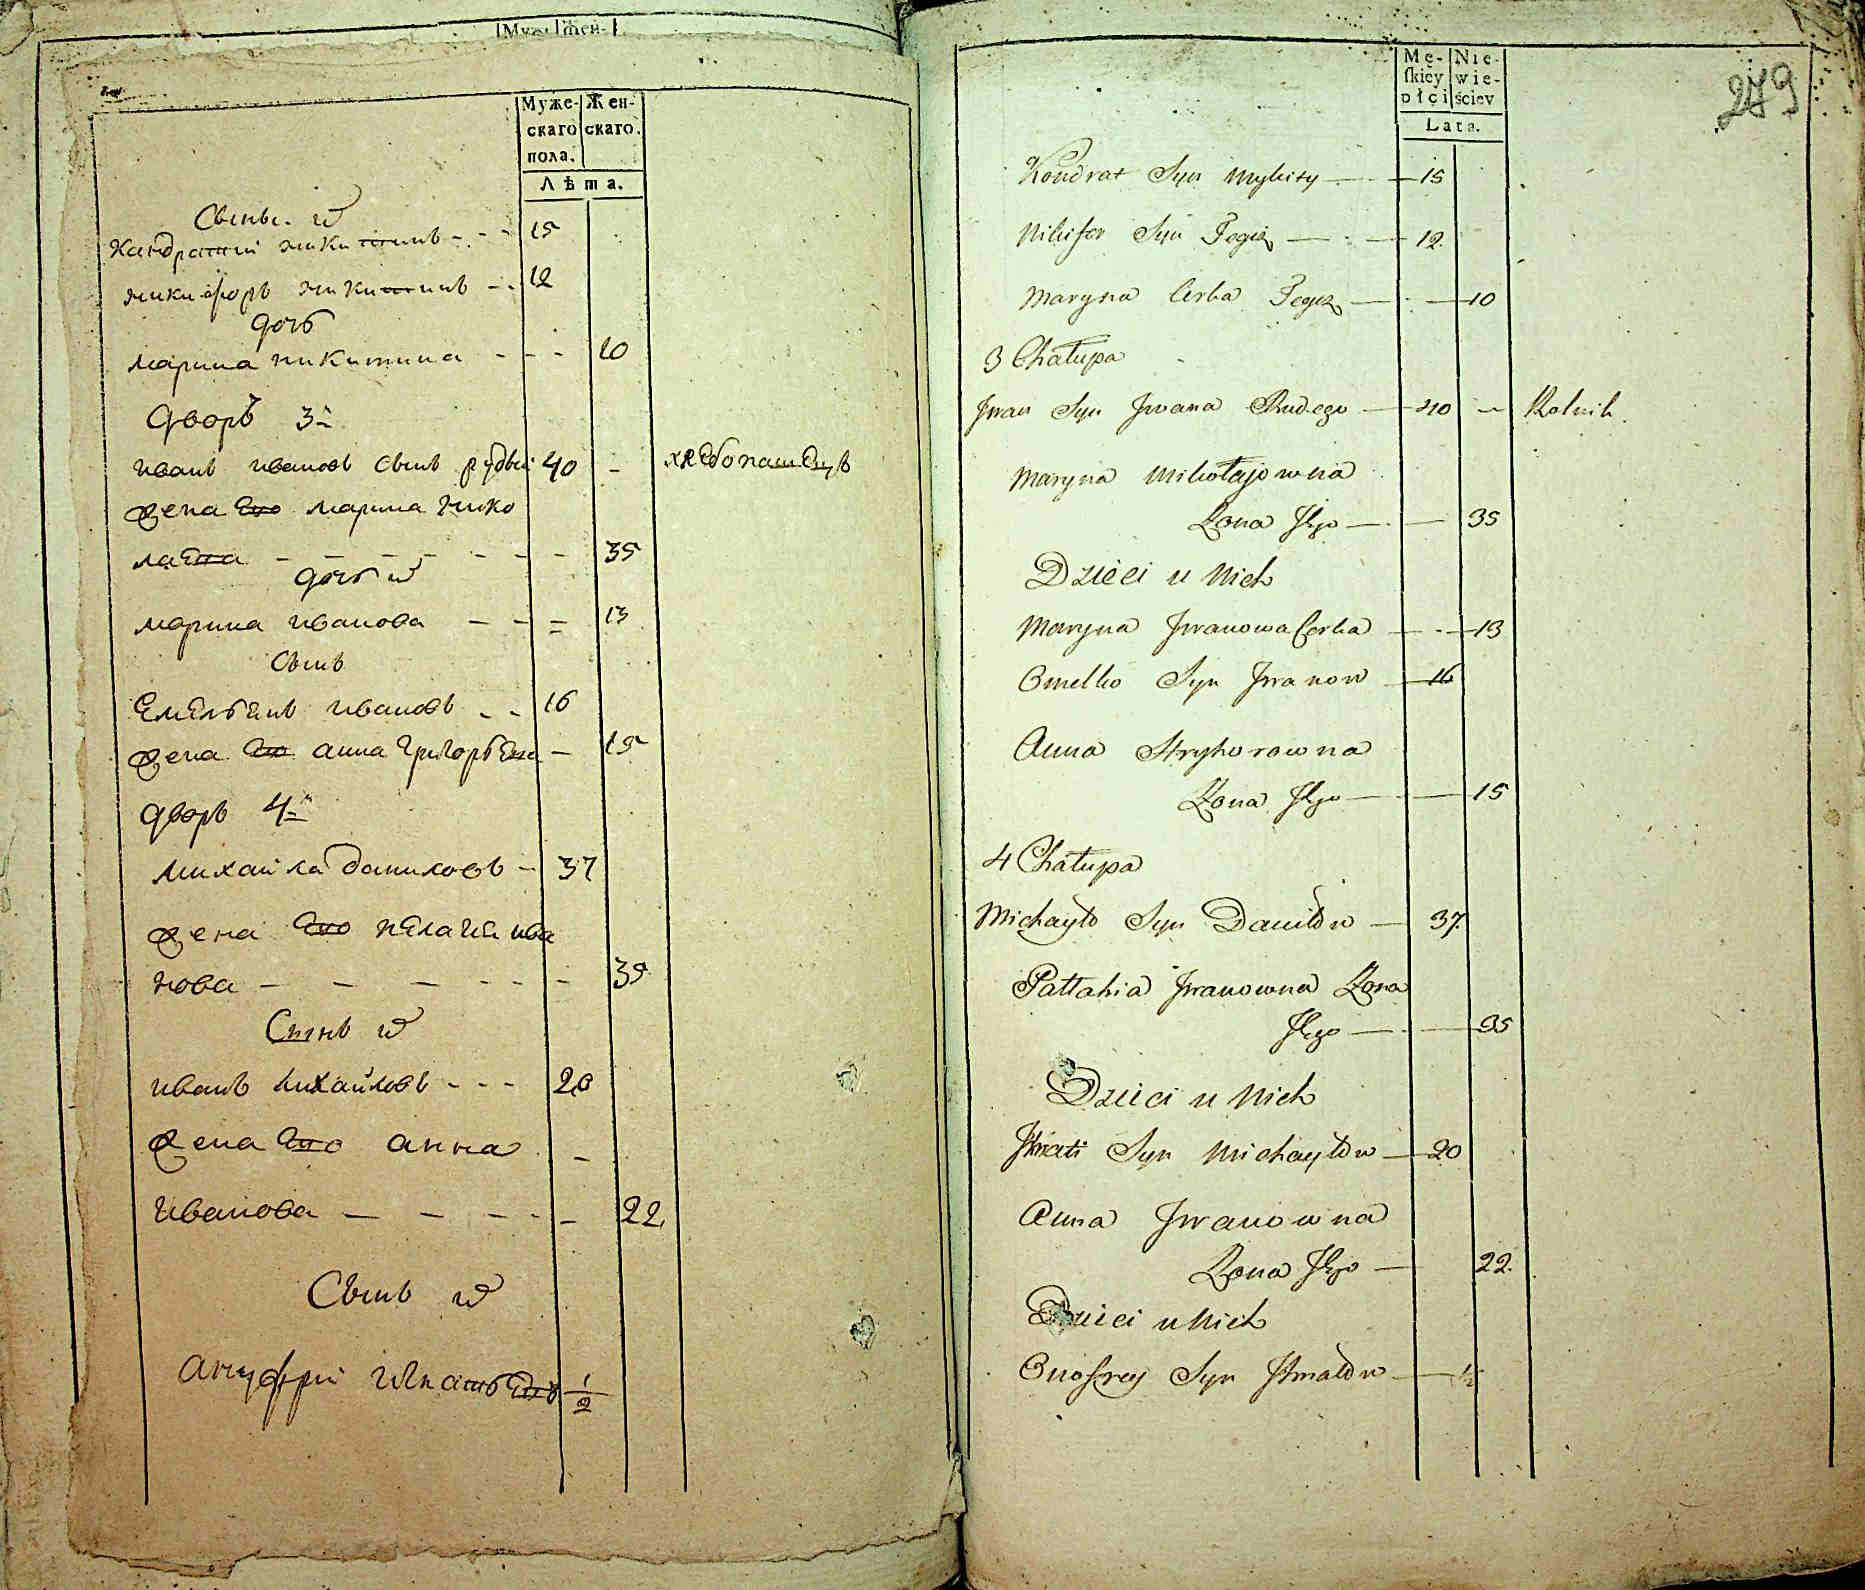 Муж. Жен.
Муже- Жен-
скаго скаго.
пола.
Лѣта.
Сынъ. и
Кандратий Никитинъ - - - 15
Никифоръ Никитинъ - - 12
дочь
Марина Никитина - - - 10
Дворъ 3й
Иванъ Ивановъ сынъ рудый 40 - хлебопашецъ
жена Его Марина Нико
лаева - - - - - - - 35
дочь и
Марина Иванова - - = 13
Сынъ
Емельянъ Ивановъ - - 16
жена Его анна Григорьева - 15
дворъ 4й
Михайла даниловъ - 37
жена Его Пелагея ива
нова - - - - - - 35
Сынъ и
Иванъ Михайловъ - - - 20
жена Его анна -
Иванова - - - - - 22
Сынъ и
Ануфрий Игнатьевъ 1/2
279
Mę- Nie-
skiey wie-
płci ściey
Lata.
Kondrat Syn Mykity — 15
Nikifor Syn Tegoż — 12
Maryna Corka Tegoż — 10
3 Chałupa
Jwan Syn Jwana Rudego — 40 - Rolnik
Maryna Mikołajowna
Zona Jego — 35
Dzieci u Nich
Maryna Jwanowa Corka — 13
Omelko Syn Jwanow — 16
Anna Hryhorowna
Zona Jego — 15
4 Chałupa
Michayło Syn Daniłow — 37.
Pałłahia Jwanowna Zona
Jego — 35
Dzieci u Nich
Syn Michayłow — 20
Anna Jwanowna
Zona Jego — 22.
Dzieci u Nich
Onofrey Syn — 1/2